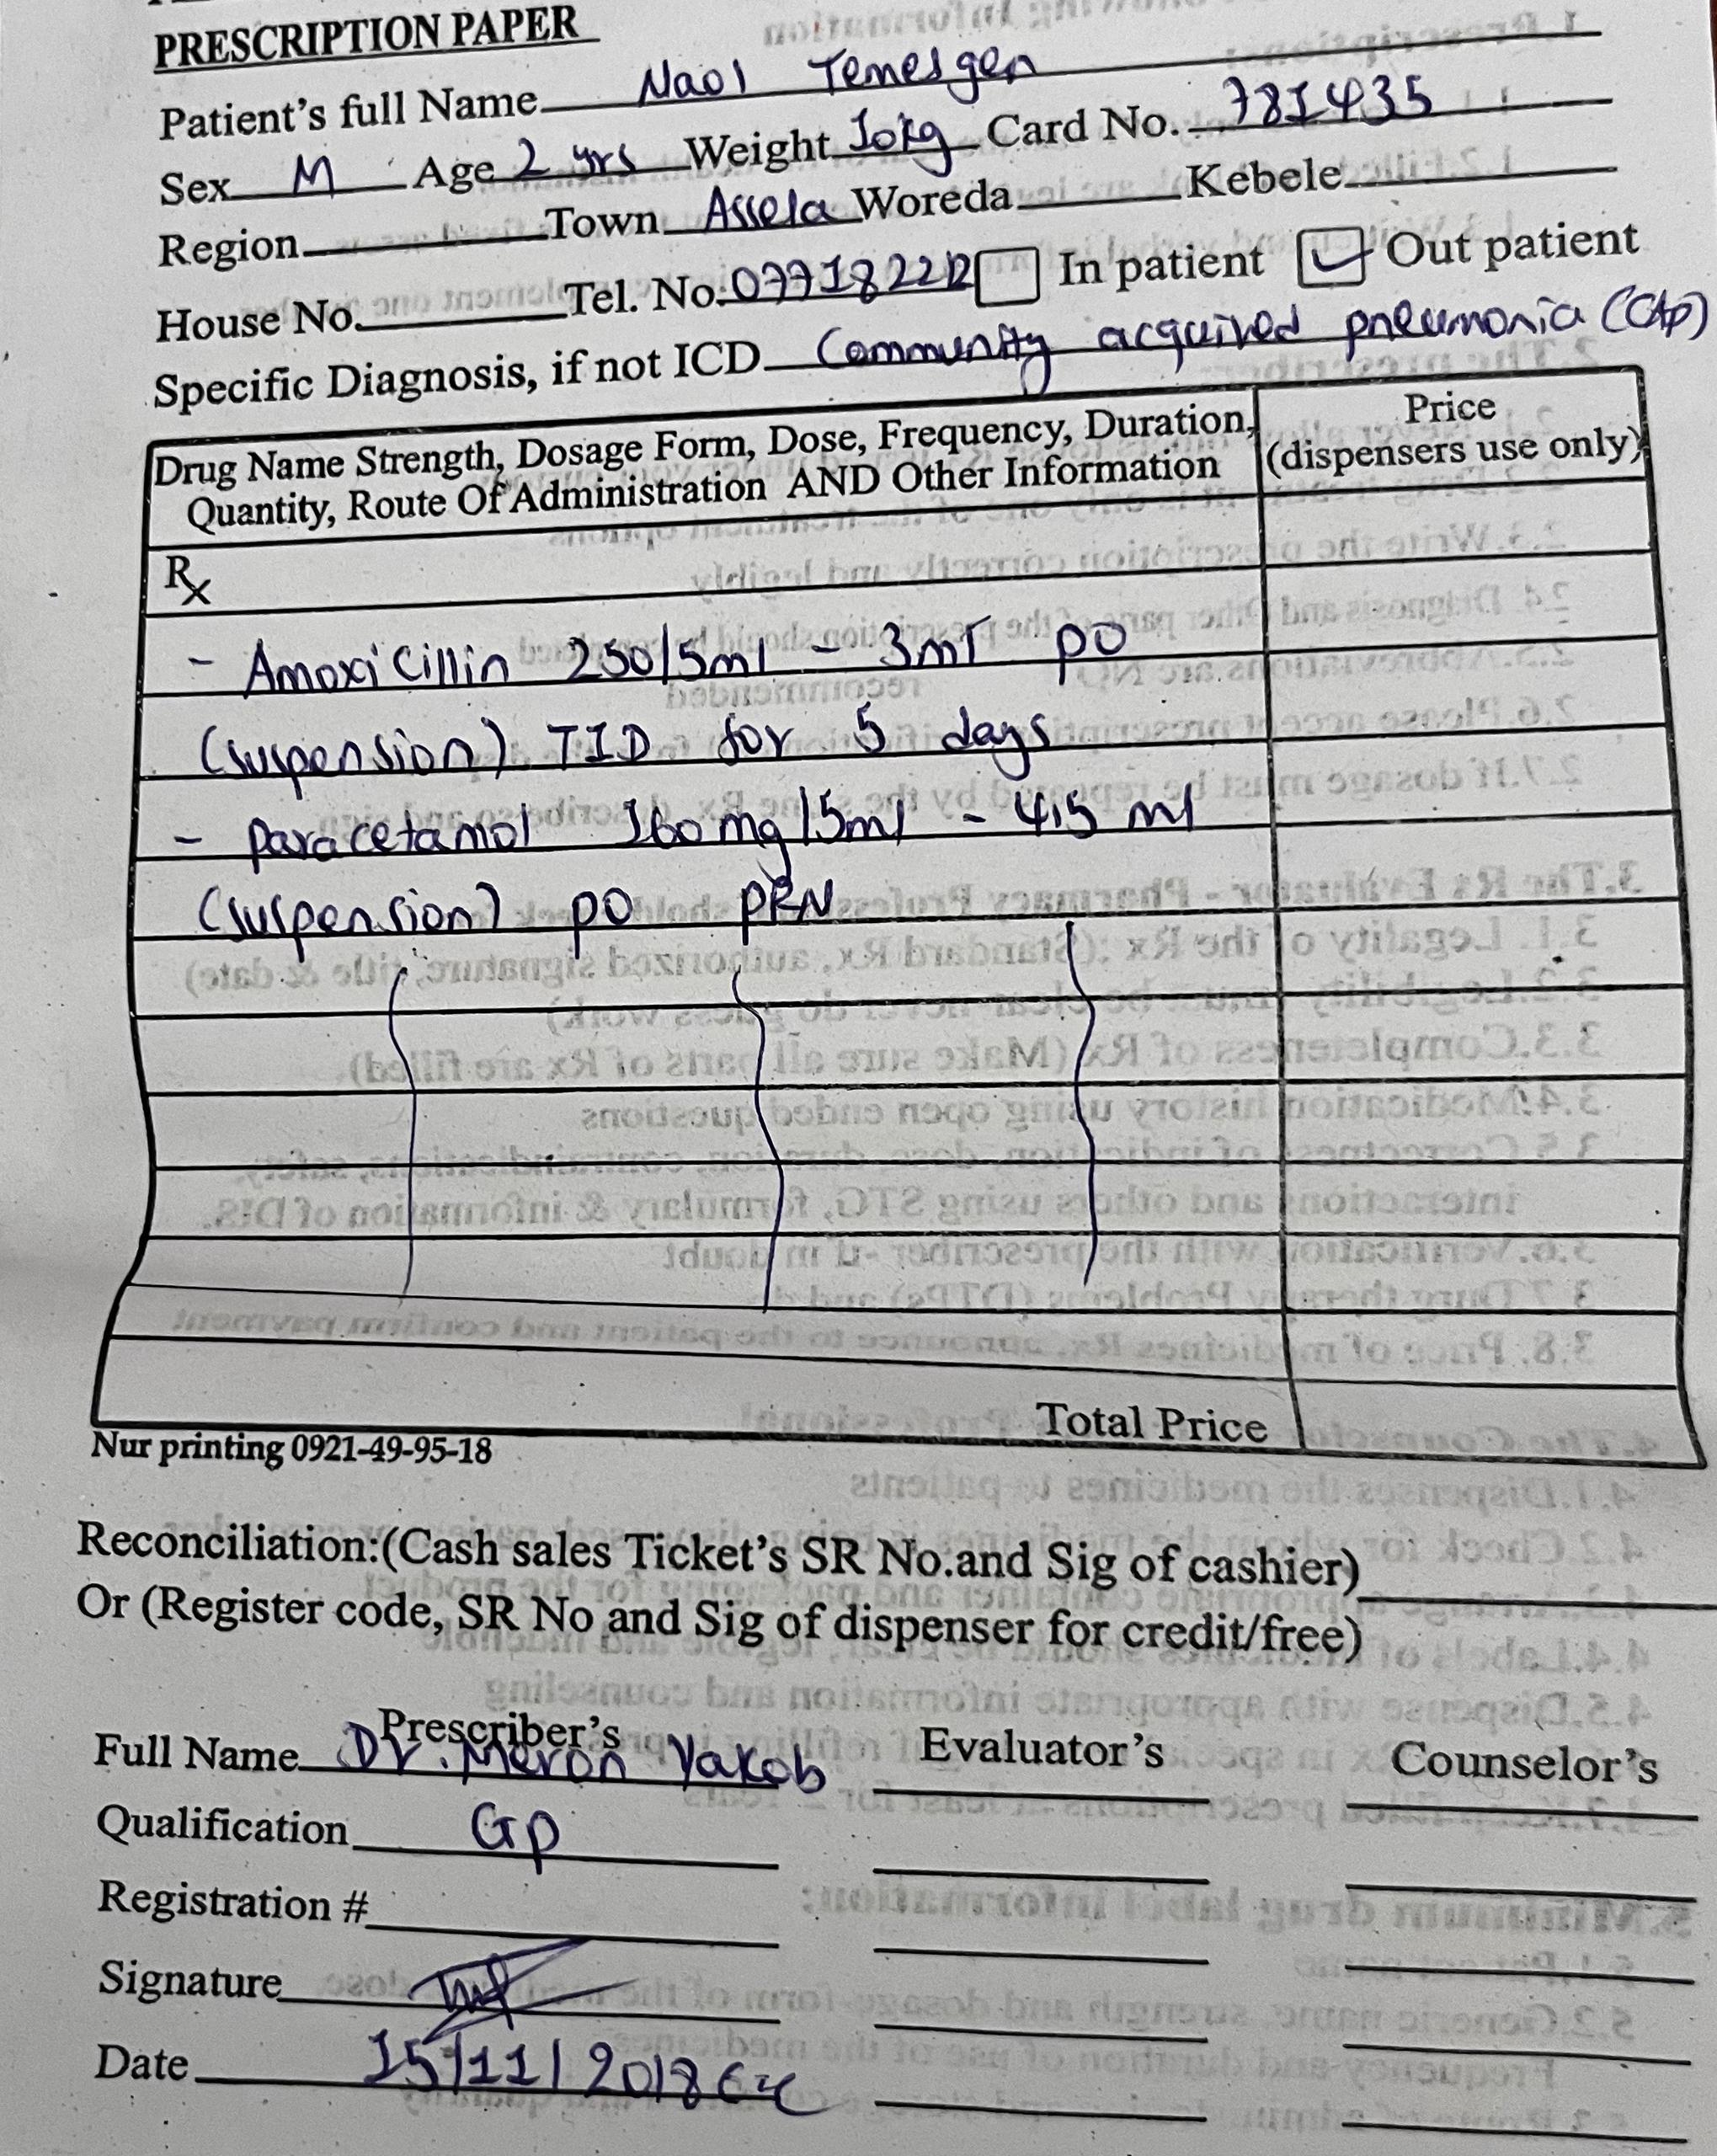 PRESCRIPTION PAPER
Patient's full Name Naol Temesgen
Sex M Age 2 yrs Weight 10kg Card No. 781435
Region Town Assela Woreda Kebele
House No. Tel. No. In patient Out patient
Specific Diagnosis, if not ICD Community acquired pneumonia (CAP)
Drug Name Strength, Dosage Form, Dose, Frequency, Duration, Quantity, Route Of Administration AND Other Information
Price (dispensers use only)
Rx
- Amoxicillin 250/5ml - 3ml PO
(suspension) TID for 5 days
- paracetamol 160mg/5ml - 4.5 ml
(suspension) PO PRN
Total Price
Nur printing 0921-49-95-18
Reconciliation:(Cash sales Ticket's SR No.and Sig of cashier)
Or (Register code, SR No and Sig of dispenser for credit/free)
Prescriber's Evaluator's Counselor's
Full Name Dr. Meron Yakob
Qualification GP
Registration #
Signature
Date 15/11/2018